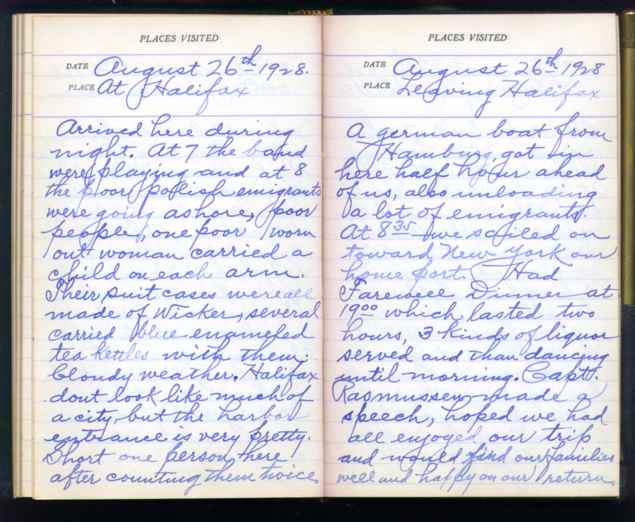 PLACES VISITED
DATE August 26th 1928.
PLACE At Halifax
Arrived here during
night. At 7 the band
were playing and at 8
the poor polish emigrants
were going ashore, poor
people, one poor worn
out woman carried a
child on each arm.
Their suit cases were all
made of Wicker, several
carried blue enameled
tea kettles with them.
Cloudy weather. Halifax
dont look like much of
a city but the harbor
entrance is very pretty.
Short one person here
after counting them twice
PLACES VISITED
DATE August 26th 1928
PLACE Leaving Halifax
A german boat from
Hamburg, got in
here half hour ahead
of us, also unloading
a lot of emigrants.
At 8 35 we sailed on
toward New York our
home port. Had
Farewell Dinner at
19 00 which lasted two
hours, 3 kinds of liquor
served and than dancing
until morning. Capt.
Rasmussen made a
speech, hoped we had
all enjoyed our trip
and would find our families
well and happy on our return